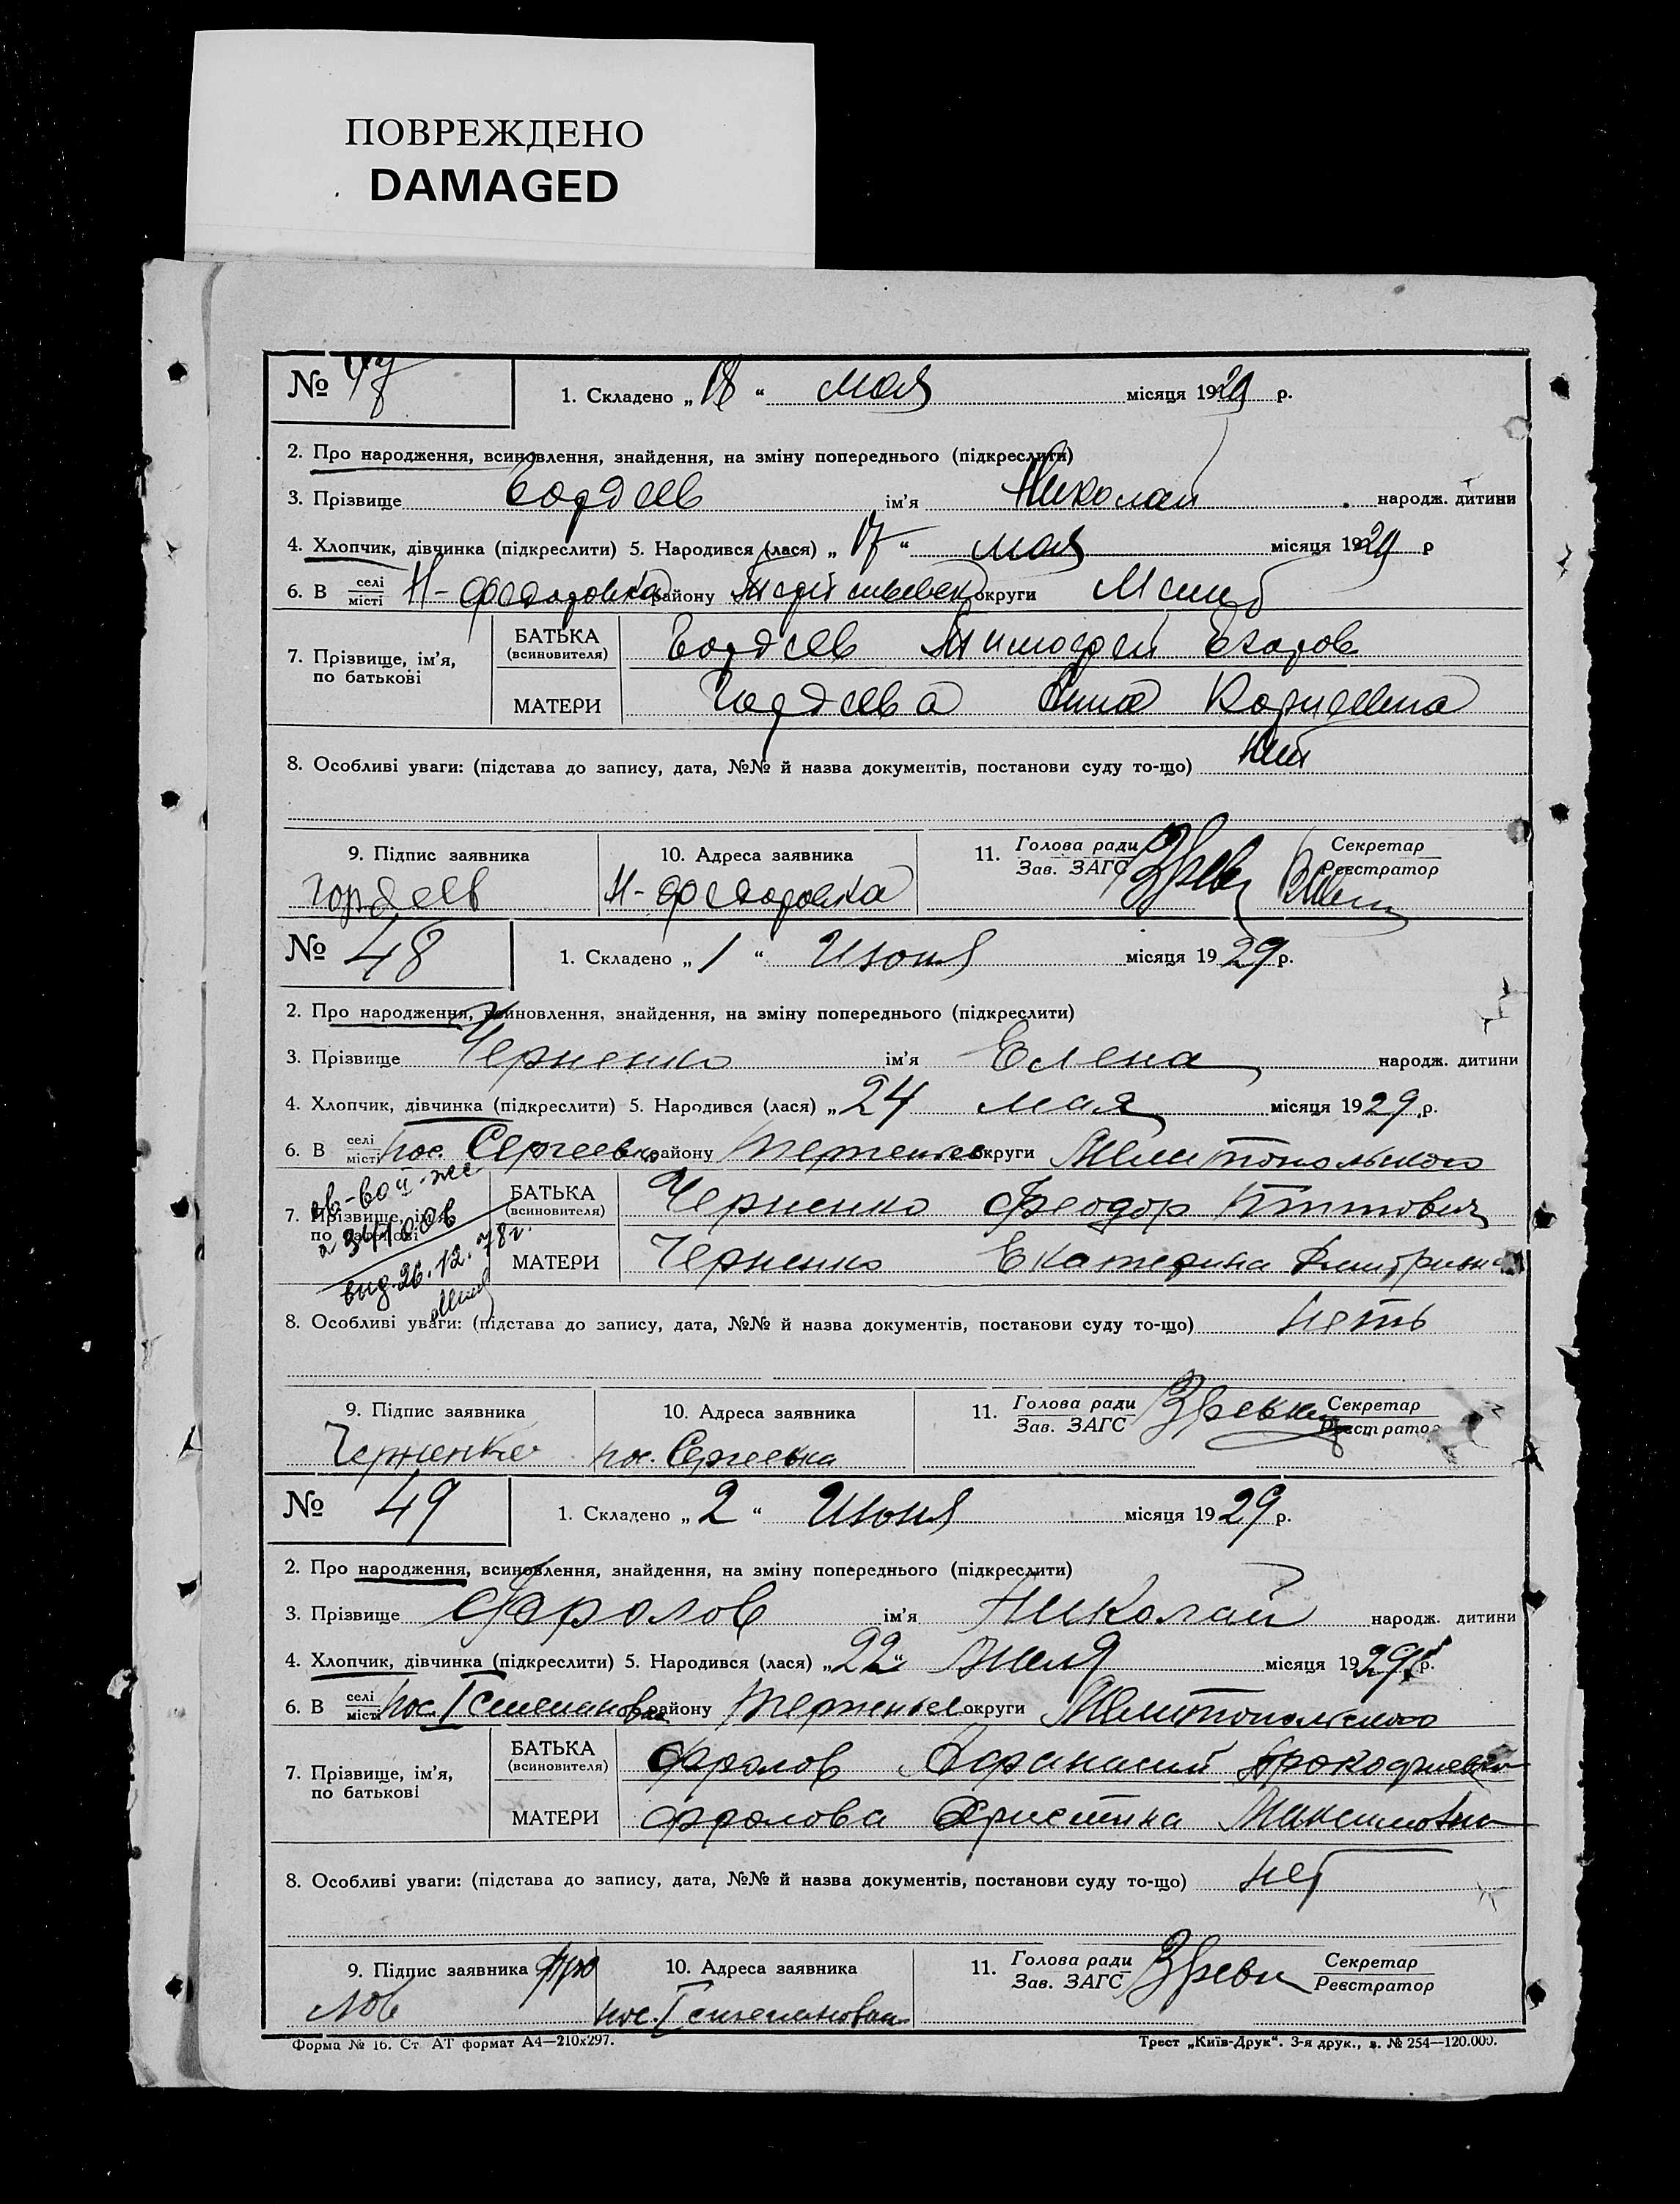 ПОВРЕЖДЕНО
DAMAGED
№ 47 1. Складено „18“ мая місяця 1929 р.
2. Про народження, всиновлення, знайдення, на зміну попереднього (підкреслити)
3. Прізвище Гордеев ім’я Николай народж. дитини
4. Хлопчик, дівчинка (підкреслити) 5. Народився (лася) „17“ мая місяця 1929 р
6. В селі місті Н-Федоровка району округи Мелит
7. Прізвище, ім’я, по батькові БАТЬКА (всиновителя) Гордеев Тимофей
МАТЕРИ Гордеева Анна Корнеевна
8. Особливі уваги: (підстава до запису, дата, №№ й назва документів, постанови суду то-що) нет
9. Підпис заявника 10. Адреса заявника 11. Голова ради Зав. ЗАГС Секретар Реєстратор
Гордеев Н-Федоровка
№ 48 1. Складено „1“ Июня місяця 1929 р.
2. Про народження, всиновлення, знайдення, на зміну попереднього (підкреслити)
3. Прізвище Черненко ім’я Елена народж. дитини
4. Хлопчик, дівчинка (підкреслити) 5. Народився (лася) „24 мая місяця 1929 р.
6. В селі місті пос. Сергеевка району округи Мелитопольского
7. Прізвище, ім’я, по батькові БАТЬКА (всиновителя) Черненко Феодор Титович
МАТЕРИ Черненко Екатерина Дмитривна
выд. 26.12.78г.
8. Особливі уваги: (підстава до запису, дата, №№ й назва документів, постанови суду то-що) нетъ
9. Підпис заявника 10. Адреса заявника 11. Голова ради Зав. ЗАГС Секретар Реєстратор
Черненко пос. Сергеевка
№ 49 1. Складено „2“ Июня місяця 1929 р.
2. Про народження, всиновлення, знайдення, на зміну попереднього (підкреслити)
3. Прізвище Фролов ім’я Николай народж. дитини
4. Хлопчик, дівчинка (підкреслити) 5. Народився (лася) „22“ місяця 1929 р.
6. В селі місті пос. I Степановка району округи Мелитопольского
7. Прізвище, ім’я, по батькові БАТЬКА (всиновителя) Фролов Афанасий Прокофиевич
МАТЕРИ Фролова Христина Максимовна
8. Особливі уваги: (підстава до запису, дата, №№ й назва документів, постанови суду то-що) нет
9. Підпис заявника Фро 10. Адреса заявника 11. Голова ради Зав. ЗАГС Секретар Реєстратор
лов пос. I Степановка
Форма № 16. Ст АТ формат А4—210х297. Трест „Київ-Друк“. 3-я друк., в. № 254—120.000.